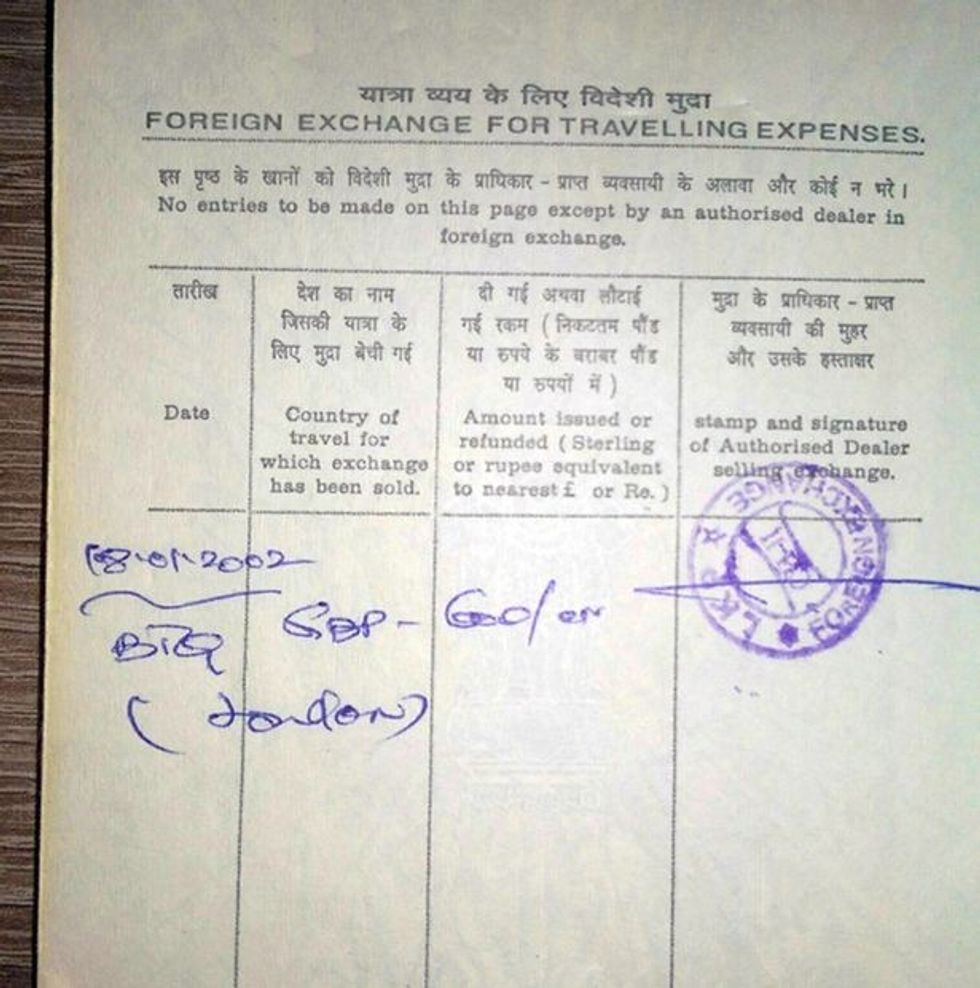 यात्रा व्यय के लिए विदेशी मुद्रा
FOREIGN EXCHANGE FOR TRAVELLING EXPENSES.
इस पृष्ठ के खानों को विदेशी मुद्रा के प्राधिकार - प्राप्त व्यवसायी के अलावा और कोई न भरे।
No entries to be made on this page except by an authorised dealer in
foreign exchange.
तारीख
Date
देश का नाम
जिसकी यात्रा के
लिए मुद्रा बेची गई
Country of
travel for
which exchange
has been sold.
दी गई अथवा लौटाई
गई रकम ( निकटतम पौंड
या रुपये के बराबर पौंड
या रुपयों में )
Amount issued or
refunded ( Sterling
or rupee equivalent
to nearest £ or Re. )
मुद्रा के प्राधिकार - प्राप्त
व्यवसायी की मुहर
और उसके हस्ताक्षर
stamp and signature
of Authorised Dealer
selling exchange.
18-01-2002
GBP -
(London)
LKP
FOREIGN EXCHANGE